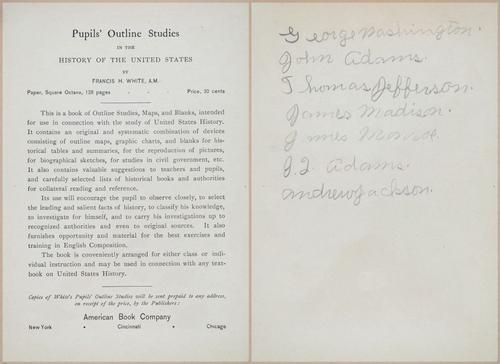 Pupils' Outline Studies
IN THE
HISTORY OF THE UNITED STATES
BY
FRANCIS H. WHITE, A.M.
Paper, Square Octavo, 128 pages - - - Price, 30 cents
This is a book of Outline Studies, Maps, and Blanks, intended
for use in connection with the study of United States History.
It contains an original and systematic combination of devices
consisting of outline maps, graphic charts, and blanks for his-
torical tables and summaries, for the reproduction of pictures,
for biographical sketches, for studies in civil government, etc.
It also contains valuable suggestions to teachers and pupils,
and carefully selected lists of historical books and authorities
for collateral reading and reference.
Its use will encourage the pupil to observe closely, to select
the leading and salient facts of history, to classify his knowledge,
to investigate for himself, and to carry his investigations up to
recognized authorities and even to original sources. It also
furnishes opportunity and material for the best exercises and
training in English Composition.
The book is conveniently arranged for either class or indi-
vidual instruction and may be used in connection with any text-
book on United States History.
Copies of White's Pupils' Outline Studies will be sent prepaid to any address,
on receipt of the price, by the Publishers:
American Book Company
New York • Cincinnati • Chicago
George Washington.
John Adams.
Thomas Jefferson.
James Madison.
James Monroe.
J. Q. Adams.
Andrew Jackson.